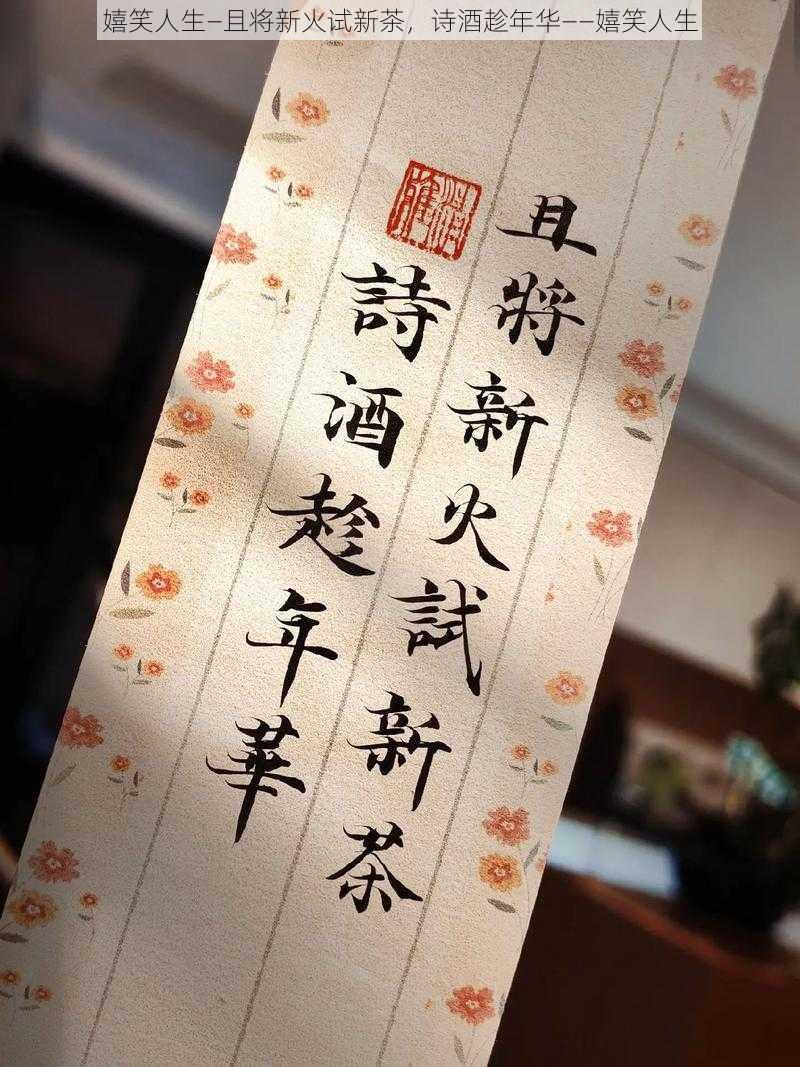 嬉笑人生—且将新火试新茶，诗酒趁年华——嬉笑人生
且將新火試新茶
詩酒趁年華